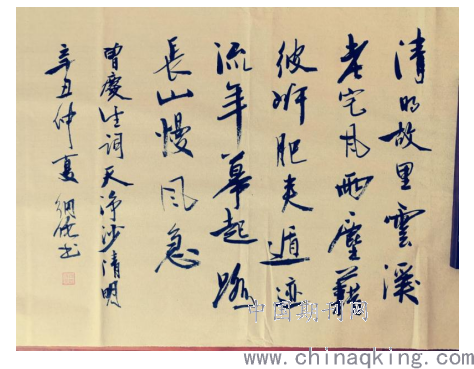 清明故里雲溪
老宅風雨塵藉
彼岸肥遁迹
流年暮起路
長山慢風急
曾慶生詞天净沙清明
辛丑仲夏书
中国期刊网
www.chinaqking.com